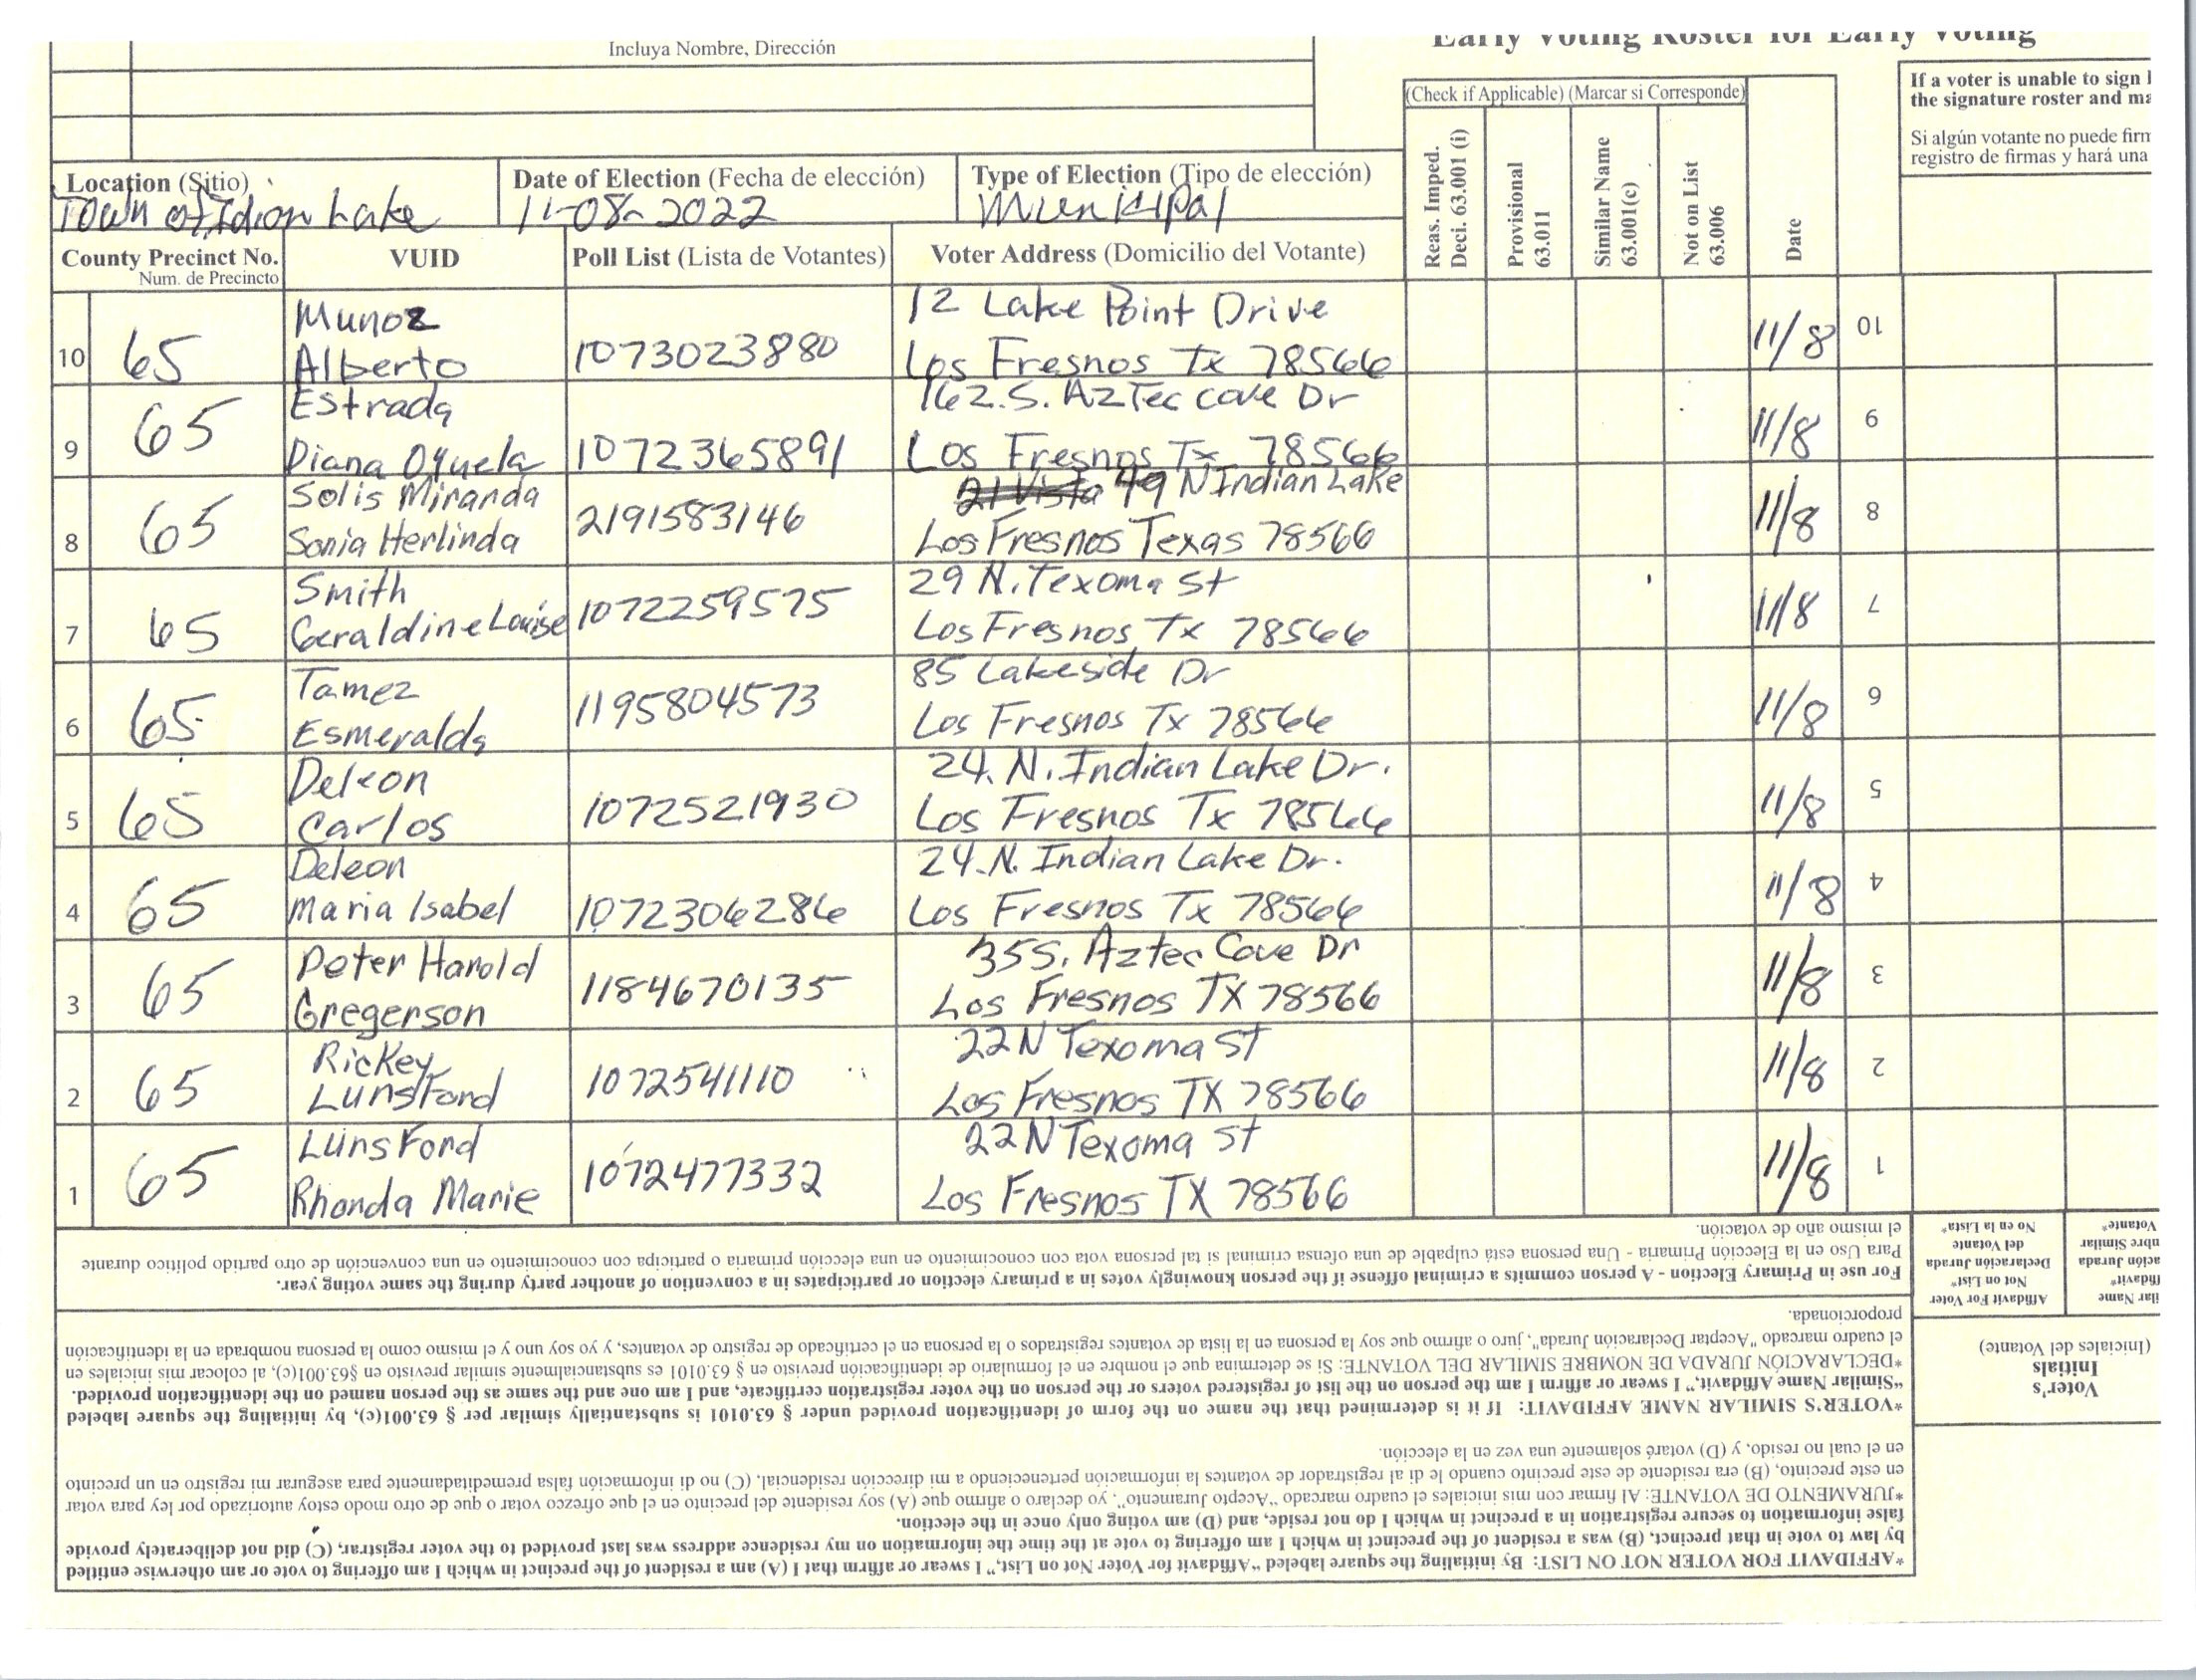 Incluya Nombre, Dirección
Early Voting Roster for Early Voting
(Check if Applicable) (Marcar si Corresponde)
Reas. Imped.
Deci. 63.001 (i)
Provisional
63.011
Similar Name
63.001(c)
Not on List
63.006
Date
If a voter is unable to sign
the signature roster and ma
Si algún votante no puede firm
registro de firmas y hará una
Location (Sitio)
Town of Idion Lake
Date of Election (Fecha de elección)
11-08-2022
Type of Election (Tipo de elección)
Municipal
County Precinct No.
Num. de Precincto
VUID
Poll List (Lista de Votantes)
Voter Address (Domicilio del Votante)
10 65 Munoz Alberto 1073023880 12 Lake Point Drive
Los Fresnos Tx 78566 11/8 10
9 65 Estrada Diana Oquela 1072365891 162.S. AzTec cove Dr
Los Fresnos Tx 78566 11/8 9
8 65 Solis Miranda Sonia Herlinda 2191583146 21 Vista 49 N Indian Lake
Los Fresnos Texas 78566 11/8 8
7 65 Smith Geraldine Louise 1072259575 29 N. Texoma St
Los Fresnos Tx 78566 11/8 7
6 65 Tamez Esmeralda 1195804573 85 Lakeside Dr
Los Fresnos Tx 78566 11/8 6
5 65 Deleon Carlos 1072521930 24. N. Indian Lake Dr.
Los Fresnos Tx 78566 11/8 5
4 65 Deleon Maria Isabel 1072306286 24.N. Indian Lake Dr.
Los Fresnos Tx 78566 11/8 4
3 65 Peter Harold Gregerson 1184670135 35 S. Aztec Cove Dr
Los Fresnos TX 78566 11/8 3
2 65 Rickey Lunsford 1072541110 22 N Texoma St
Los Fresnos TX 78566 11/8 2
1 65 Lunsford Rhonda Marie 1072477332 22 N Texoma St
Los Fresnos TX 78566 11/8 1
*AFFIDAVIT FOR VOTER NOT ON LIST: By initialing the square labeled “Affidavit for Voter Not on List,” I swear or affirm that I (A) am a resident of the precinct in which I am offering to vote or am otherwise entitled
by law to vote in that precinct, (B) was a resident of the precinct in which I am offering to vote at the time the information on my residence address was last provided to the voter registrar, (C) did not deliberately provide
false information to secure registration in a precinct in which I do not reside, and (D) am voting only once in the election.
*JURAMENTO DE VOTANTE: Al firmar con mis iniciales el cuadro marcado “Acepto Juramento”, yo declaro o afirmo que (A) soy residente del precinto en el que ofrezco votar o que de otro modo estoy autorizado por ley para votar
en este precinto, (B) era residente de este precinto cuando le di al registrador de votantes la información perteneciendo a mi dirección residencial, (C) no di información falsa premeditadamente para asegurar mi registro en un precinto
en el cual no resido, y (D) votaré solamente una vez en la elección.
*VOTER'S SIMILAR NAME AFFIDAVIT: If it is determined that the name on the form of identification provided under § 63.0101 is substantially similar per § 63.001(c), by initialing the square labeled
“Similar Name Affidavit,” I swear or affirm I am the person on the list of registered voters or the person on the voter registration certificate, and I am one and the same as the person named on the identification provided.
*DECLARACIÓN JURADA DE NOMBRE SIMILAR DEL VOTANTE: Si se determina que el nombre en el formulario de identificación previsto en § 63.0101 es substancialmente similar previsto en §63.001(c), al colocar mis iniciales en
el cuadro marcado "Aceptar Declaración Jurada", juro o afirmo que soy la persona en la lista de votantes registrados o la persona en el certificado de registro de votantes, y yo soy uno y el mismo como la persona nombrada en la identificación
proporcionada.
For use in Primary Election - A person commits a criminal offense if the person knowingly votes in a primary election or participates in a convention of another party during the same voting year.
Para Uso en la Elección Primaria - Una persona está culpable de una ofensa criminal si tal persona vota con conocimiento en una elección primaria o participa con conocimiento en una convención de otro partido político durante
el mismo año de votación.
Voter's
Initials
(Iniciales del Votante)
ilar Name
ffidavit*
ación Jurada
mbre Similar
Votante*
Affidavit For Voter
Not on List*
Declaración Jurada
del Votante
No en la Lista*